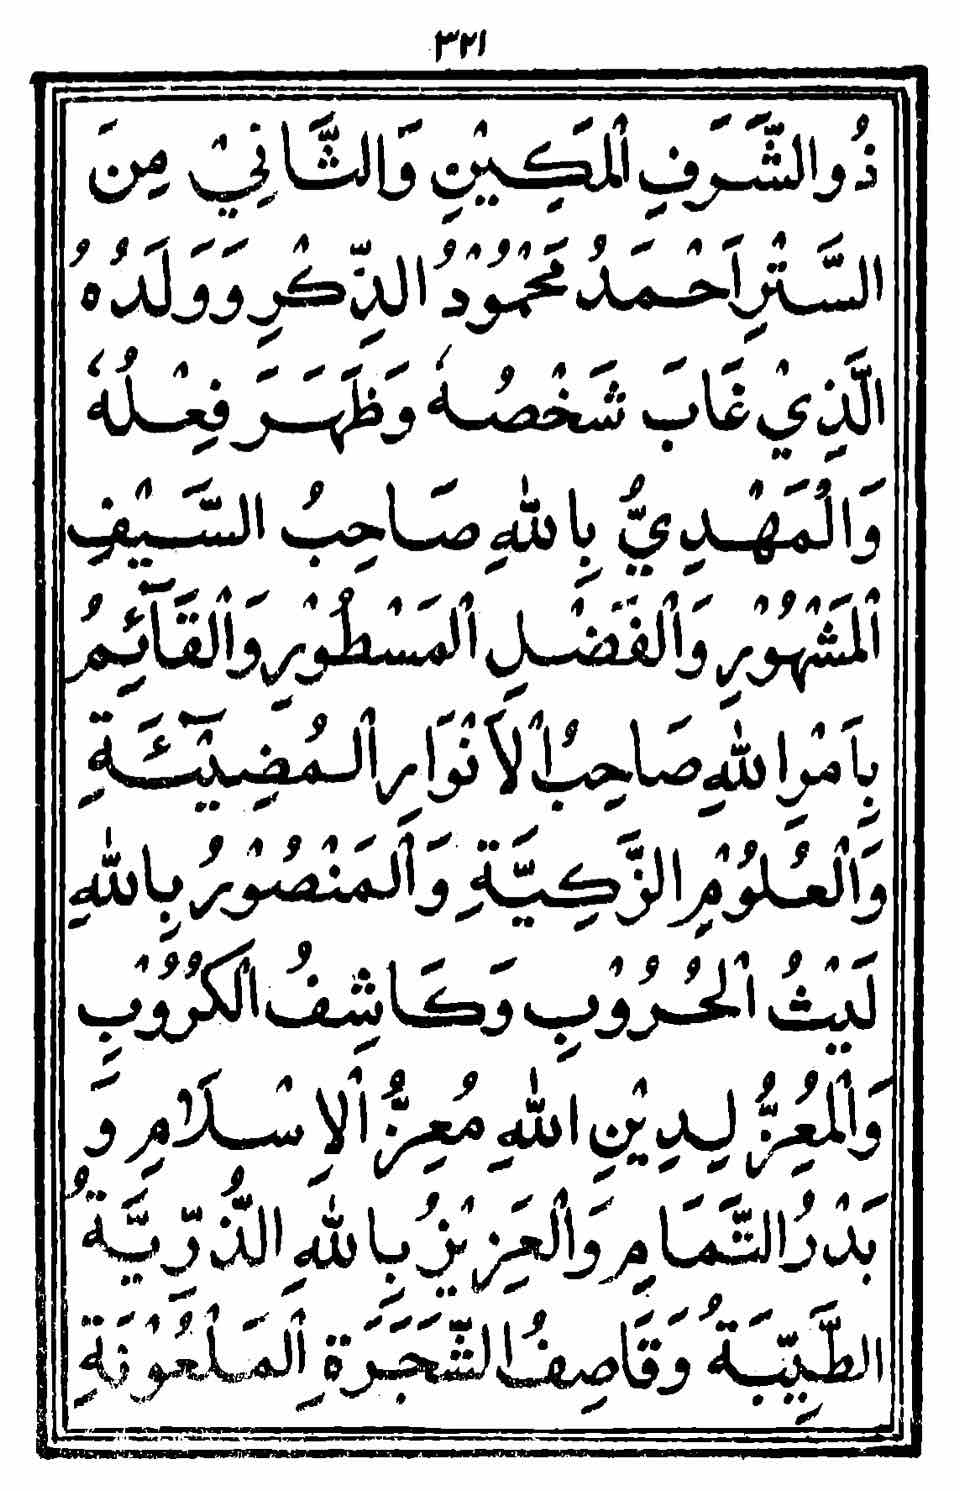 ٣٢١
ذُو الشَّرَفِ الْمَكِيْنِ وَالثَّانِيْ مِنَ
السَّتْرِ اَحْمَدُ مَحْمُوْدُ الذِّكْرِ وَوَلَدُهُ
الَّذِيْ غَابَ شَخْصُهٗ وَظَهَرَ فِعْلُهٗ
وَالْمَهْدِيُّ بِاللهِ صَاحِبُ السَّيْفِ
الْمَشْهُوْرِ وَالْفَضْلِ الْمَسْطُوْرِ وَالْقَآئِمُ
بِاَمْرِ اللهِ صَاحِبُ الْاَنْوَارِ الْمُضِيْٓئَةِ
وَالْعُلُوْمِ الزَّكِيَّةِ وَالْمَنْصُوْرُ بِاللهِ
لَيْثُ الْحُرُوْبِ وَكَاشِفُ الْكُرُوْبِ
وَالْمُعِزُّ لِدِيْنِ اللهِ مُعِزُّ الْاِسْلَامِ وَ
بَدْرُ التَّمَامِ وَالْعَزِيْزُ بِاللهِ الذُّرِّيَّةُ
الطَّيِّبَةُ وَقَاصِفُ الشَّجَرَةِ الْمَلْعُوْنَةِ